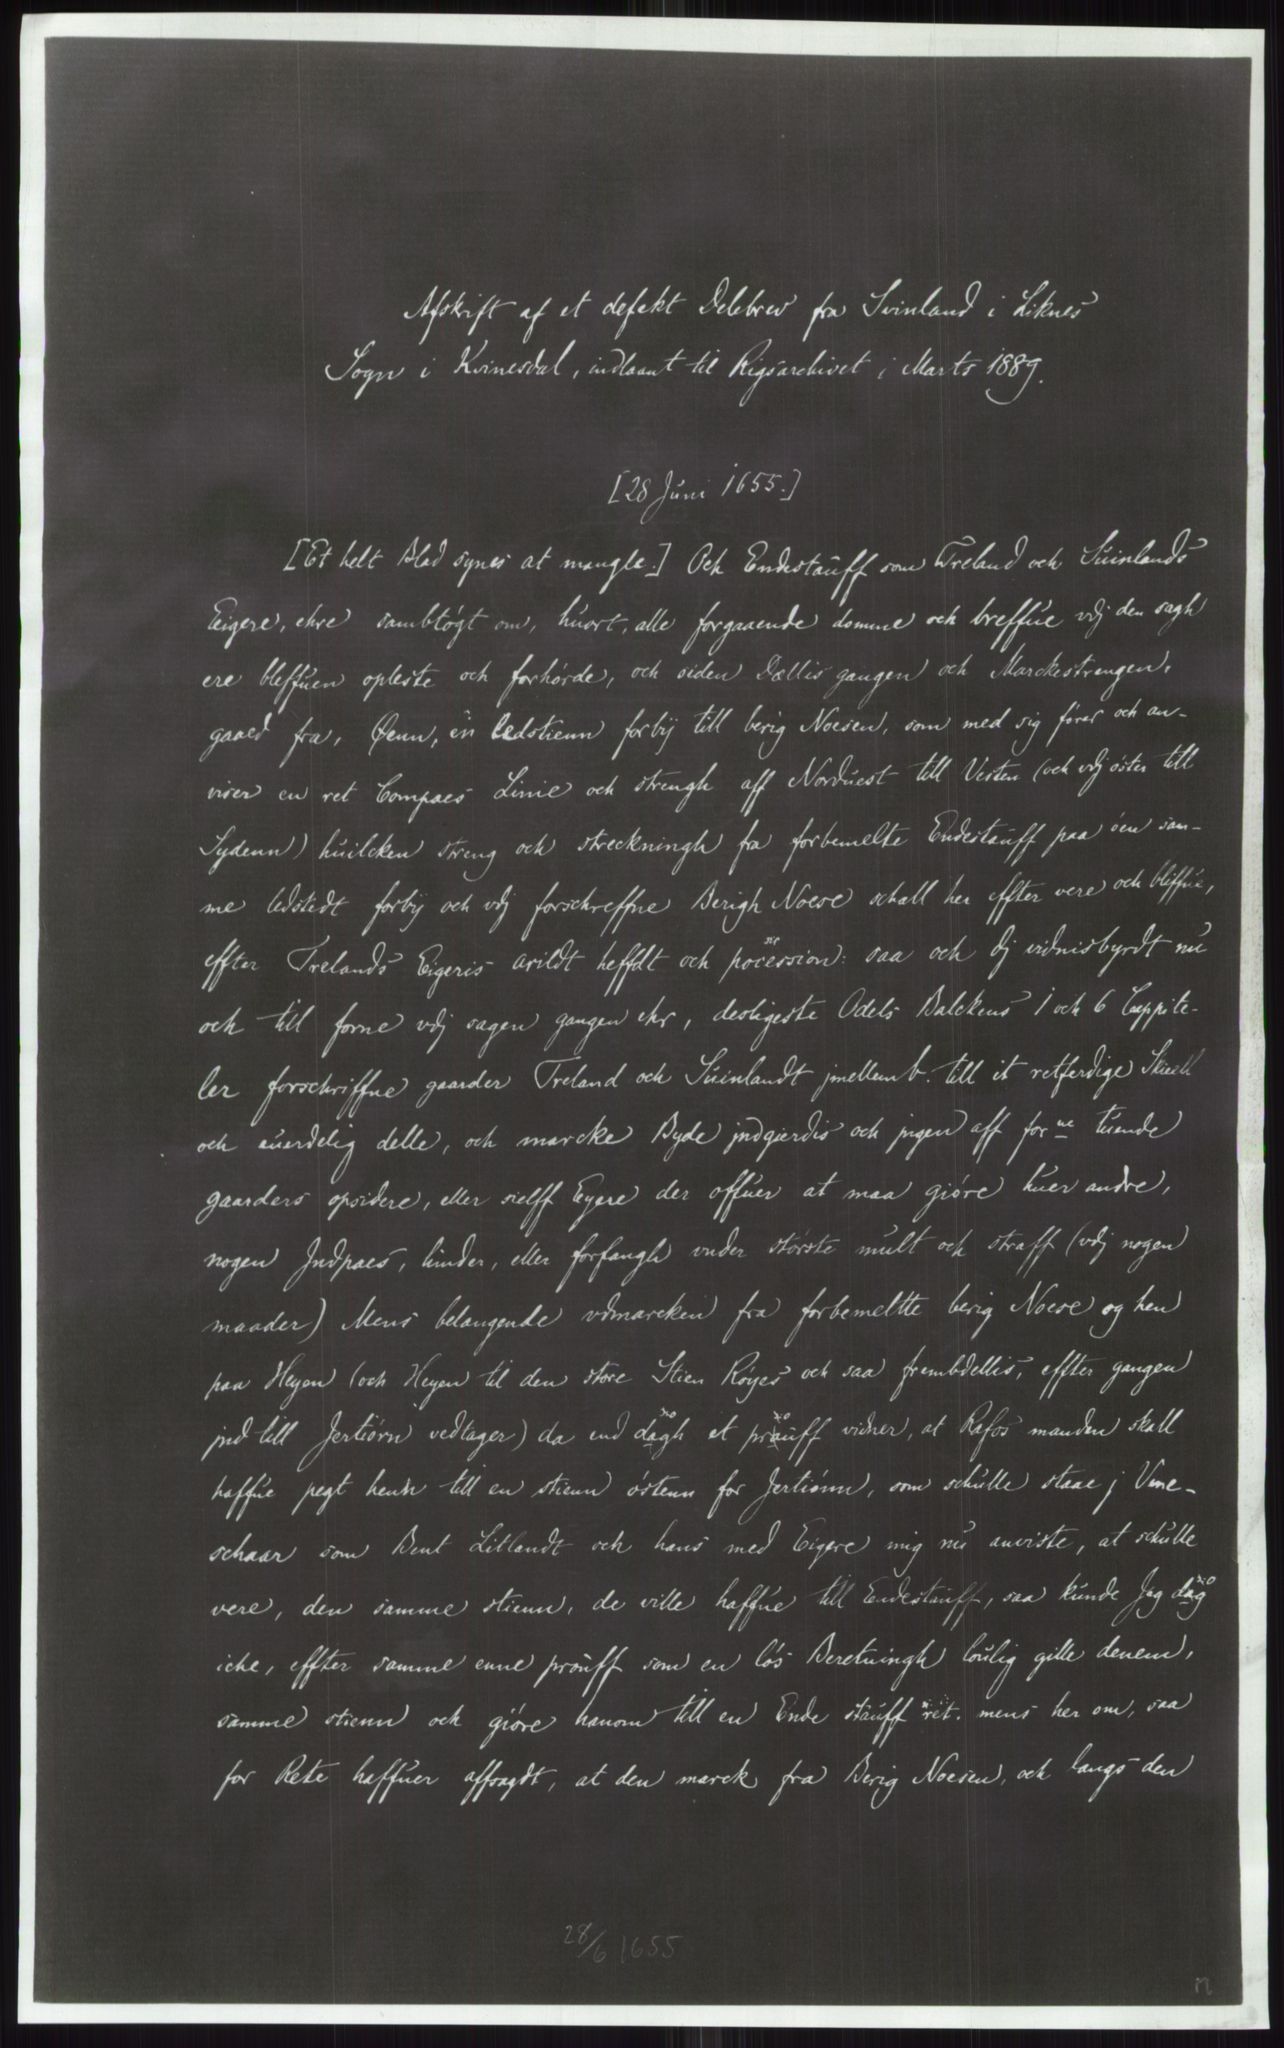 Afskrift af et defekt Delebrev fra Svinland i Liknes
Sogn i Kvinesdal, indlaant til Rigsarchivet i Marts 1889.
[28 Juni 1655.]
[Et helt Blad synes at mangle.] Och Endestauff som Treland och Suinlands
Eigere, ehre sambtøgt om, huort, alle forgaaende domme och breffue vdj den sagh
ere bleffuen opleste och forhørde, och siden Dællis gangen och Marckestrengen,
gaaed fra, Øenn, en Ledstienn forbij till berig Noesen, som med sig fører och an-
viser en ret Compaes Linie och strengh aff Norduest till Vesten (och vdj øster till
Sydenn) huilcken streng och streckningh fra forbemelte Endestauff paa øen sam-
me ledstedt forbij och vdj forschreffne Berigh Noese schall her effter vere och bliffue,
effter Trelands Eigeris arildt heffdt och pocession: saa och dj vidnisbyrdt nu
och till forne vdj sagen gangen ehr, desligeste Odels Balckens 1 och 6 Cappite-
ler forschriffne gaarder Treland och Suinlandt jmellem b. till it retferdige Skiell
och euerdelig delle, och marcke Byde jndgierdis och jngen aff for ne tuende
gaarders opsidere, eller sielff Eyere der offuer at maa giøre huer andre,
nogen Jndpaes, hinder, eller forfangh vnder største mult och straff (vdj nogen
maader) Mens belangende vdmarcken fra forbemeltte berig Noese og hen
paa Heyen (och Heyen til den store Stien Røyes och saa frembdellis, effter gangen
jnd till Jertiørn vedtager) da end dagh et prauff vidner, at Rafos manden skall
haffue pegt henn till en stienn østenn for Jertiønn, som schulle staae j Vine-
schaar som Bent Litlandt och hans med Eigere mig nu anviste, at schulle
vere, den samme stienn, de ville haffue till Endestauff, saa kunde Jag dag
iche, effter samme enne prouff som en løs Beretningh loulig gille denem,
samme stienn och giøre hanom till en Ende stauff ret. mens her om, saa
for Rete haffuer affsagdt, at den marck fra Berig Noesen, och langs den
28/6 1655